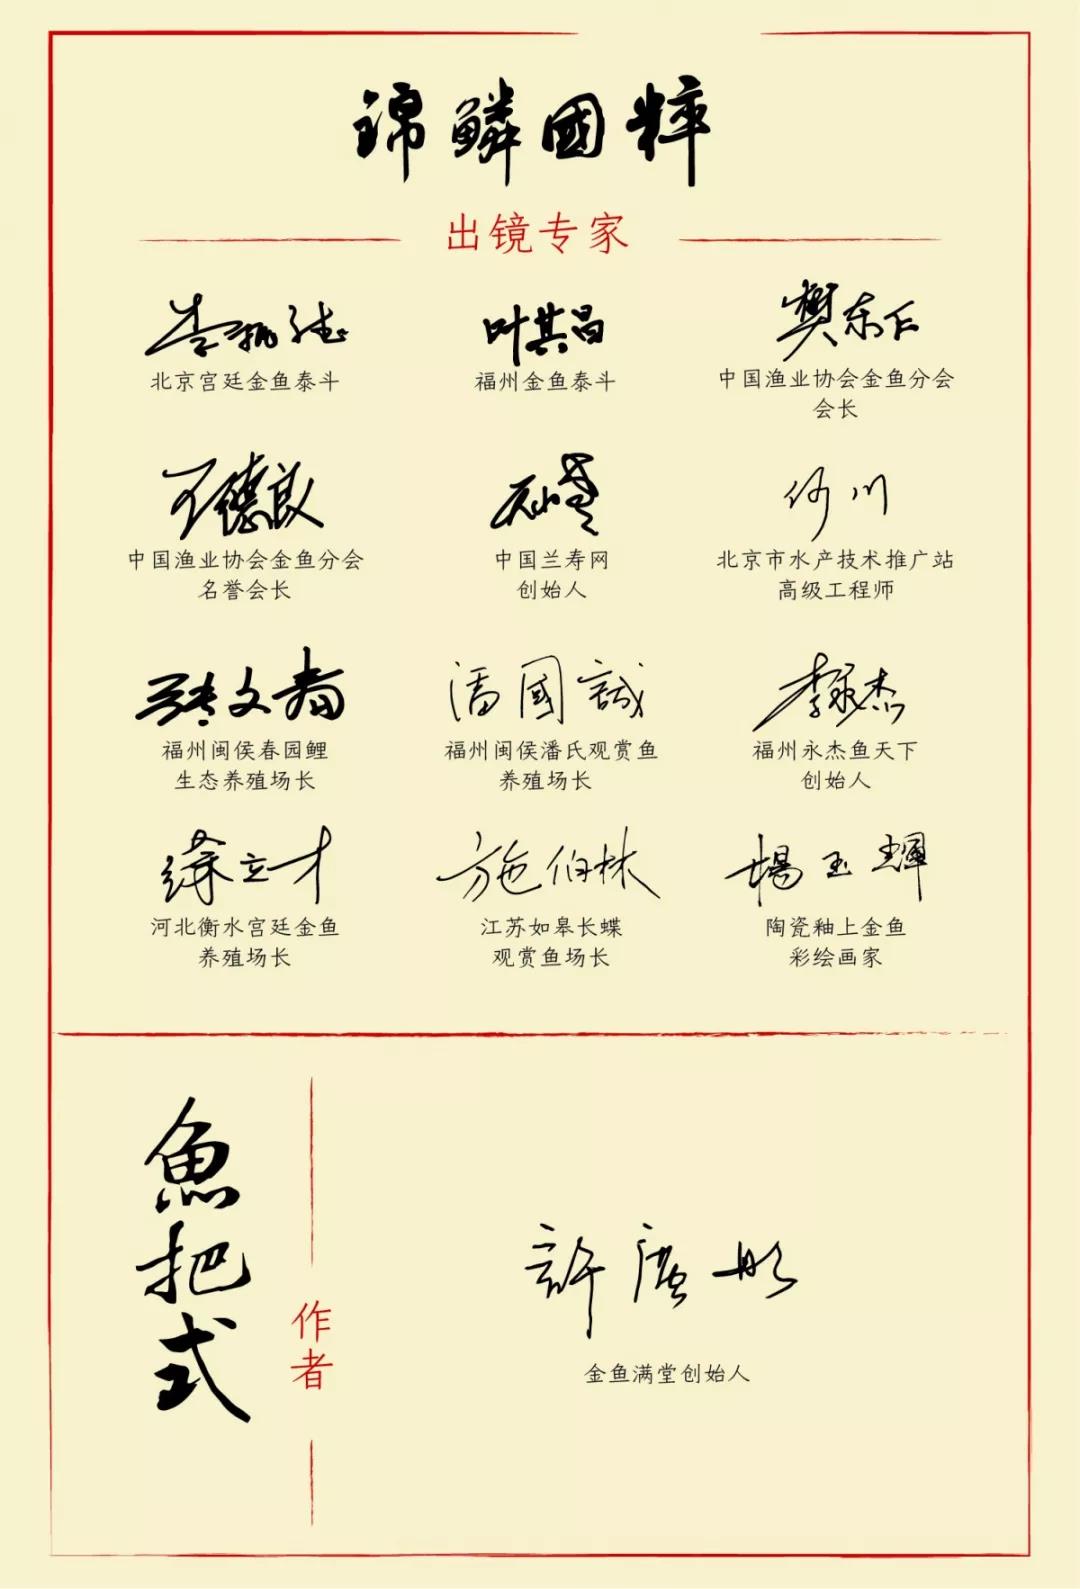 锦鳞國粹
出镜专家
李振德
北京宫廷金鱼泰斗
叶其昌
福州金鱼泰斗
樊东仁
中国渔业协会金鱼分会
会长
王德良
中国渔业协会金鱼分会
名誉会长
中国兰寿网
创始人
何川
北京市水产技术推广站
高级工程师
张文
福州闽侯春园鲤
生态养殖场长
潘國誠
福州闽侯潘氏观赏鱼
养殖场长
李永杰
福州永杰鱼天下
创始人
徐立才
河北衡水宫廷金鱼
养殖场长
施伯林
江苏如皋长蝶
观赏鱼场长
楊玉輝
陶瓷釉上金鱼
彩绘画家
魚把式
作者
許廣彤
金鱼满堂创始人